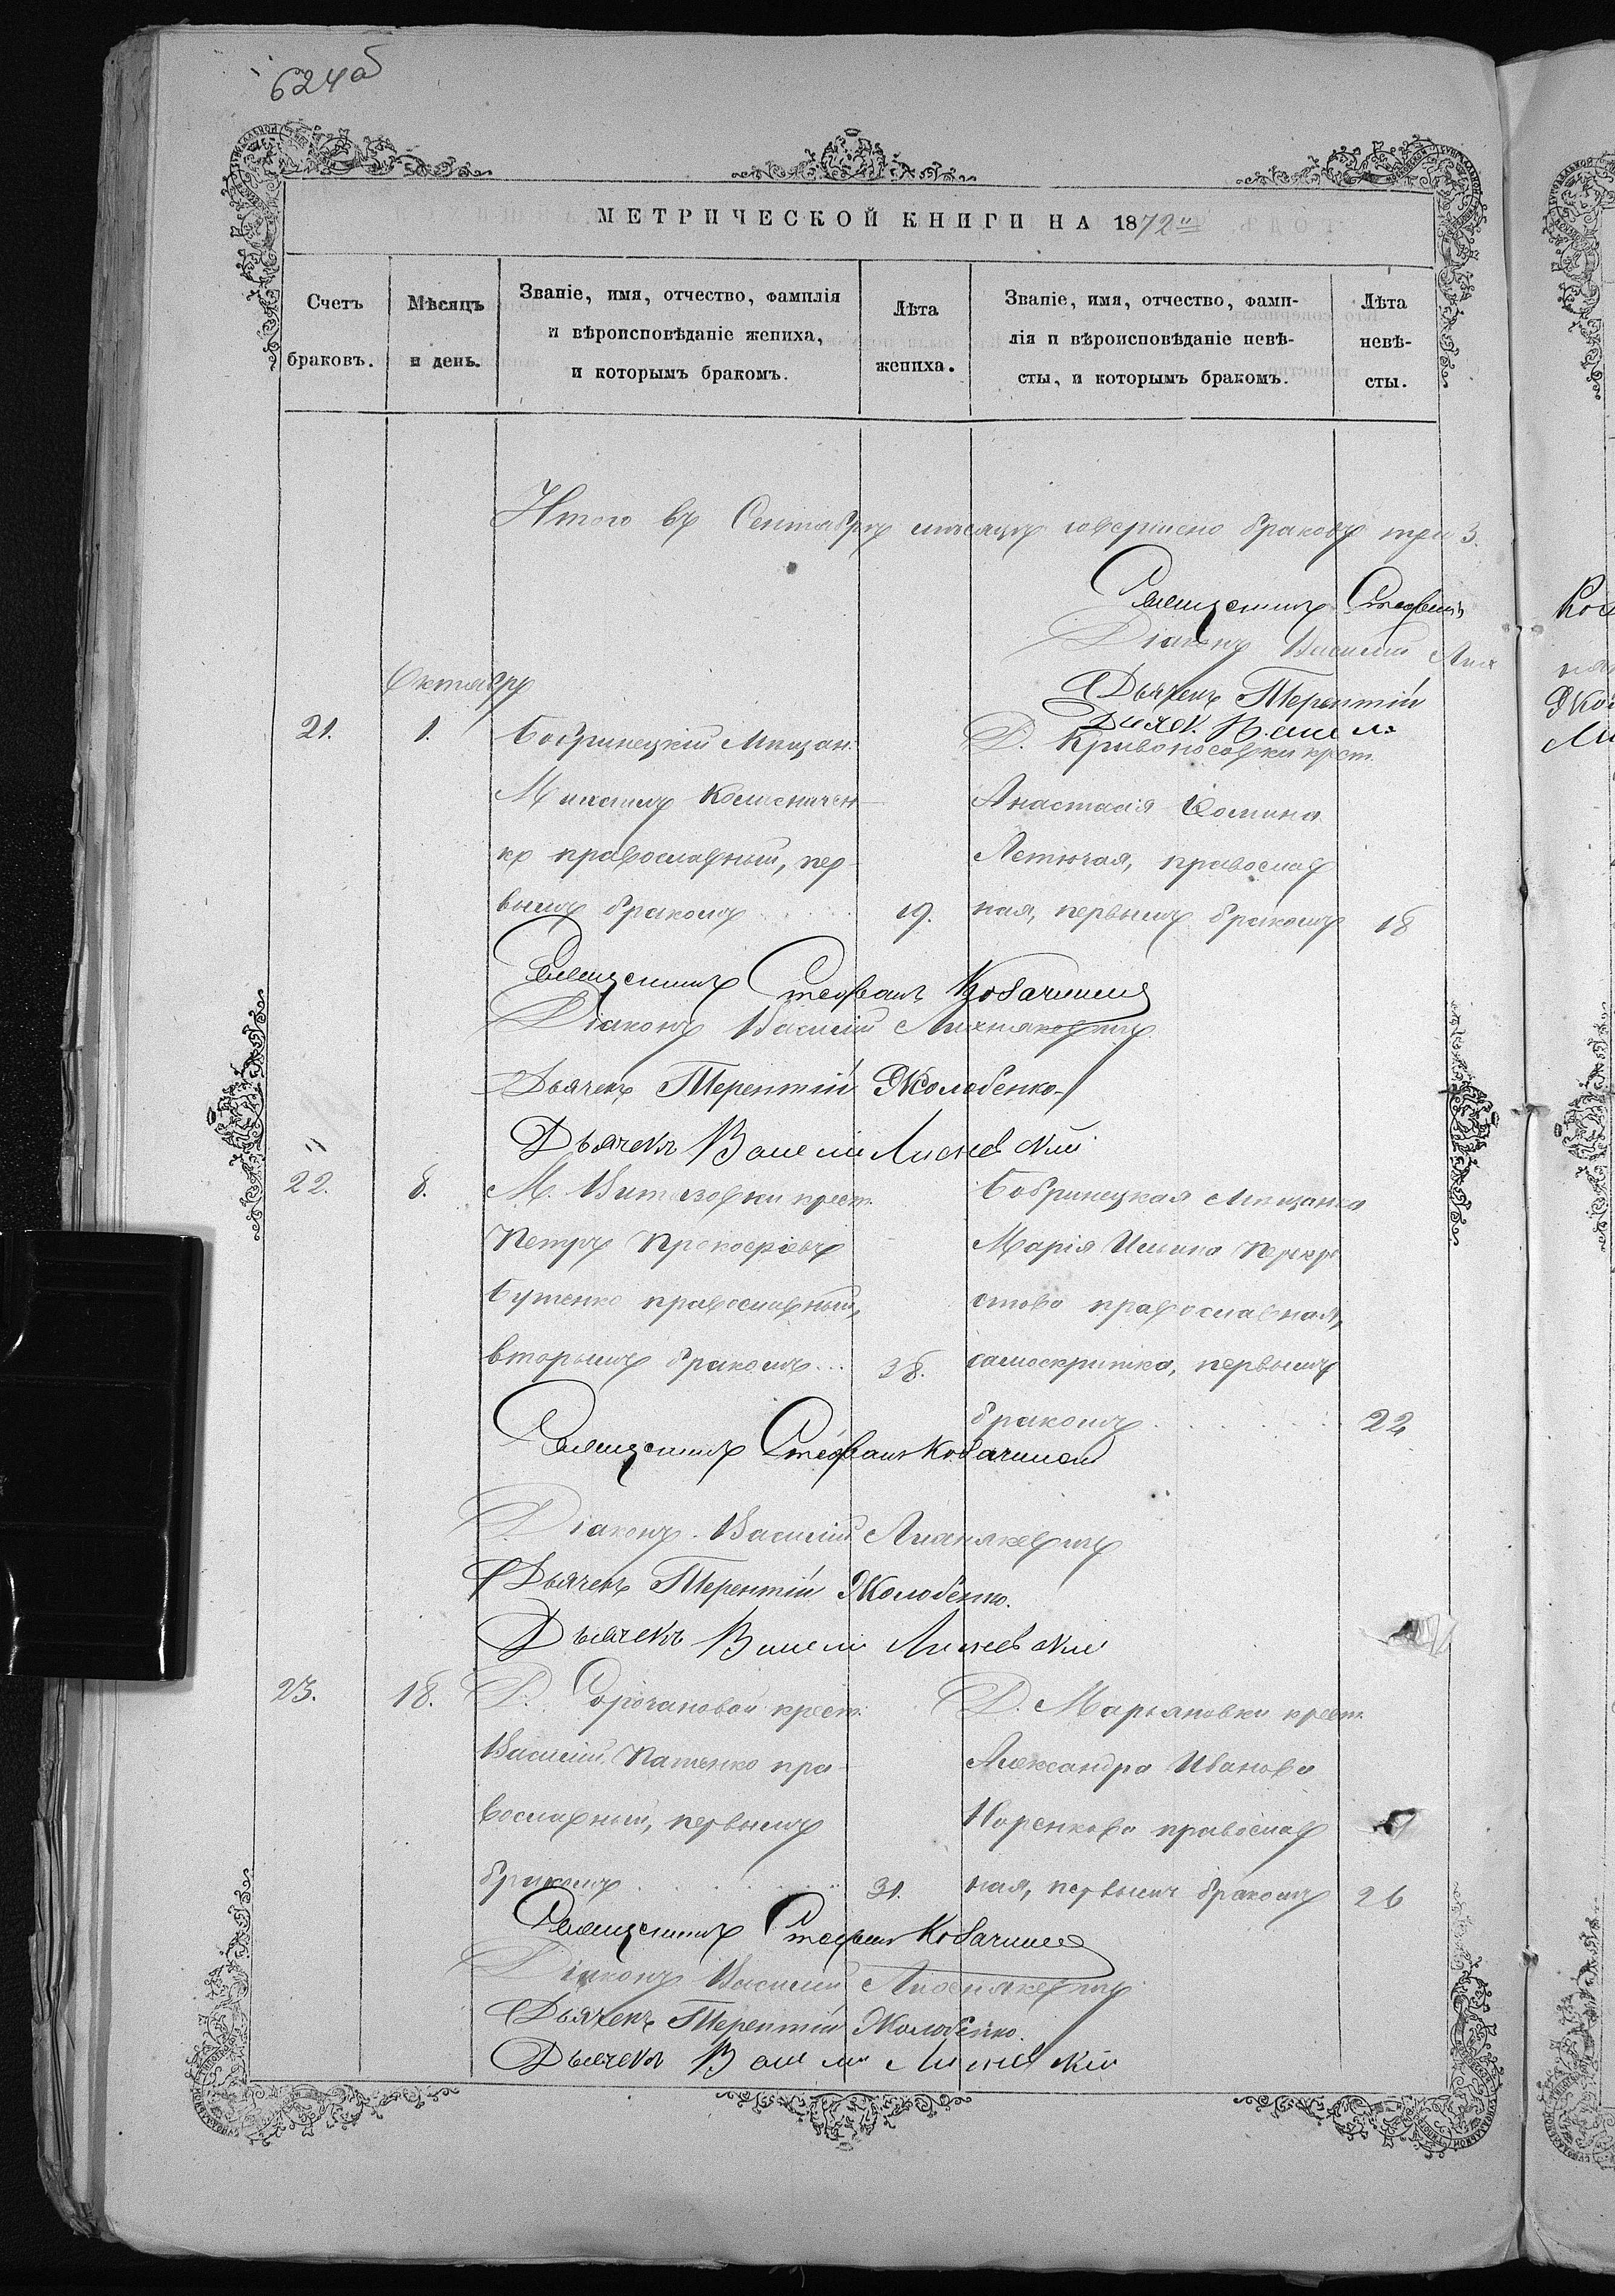 624об
МЕТРИЧЕСКОЙ КНИГИ НА 1872й
Счетъ браковъ.
Мѣсяцъ и день.
Званіе, имя, отчество, фамилія
и вѣроисповѣданіе жениха,
и которымъ бракомъ.
Лѣта жениха.
Званіе, имя, отчество, фами-
лія и вѣроисповѣданіе невѣ-
сты, и которымъ бракомъ.
Лѣта невѣ-
сты.
Итого въ Сентябрѣ мѣсяцѣ совершено браковъ три 3.
Священникъ Стефанъ
Діаконъ Василій
Дьячекъ Терентій
Октябрь
21. 1. Бобринецкій Мѣщан.
Максимъ Колисничен-
ко православный, пер-
вымъ бракомъ 19.
Д. Кривоносовки крест.
Анастасія Комина
Летючая, православ
ная, первымъ бракомъ 18
Священникъ Стефанъ
Діаконъ Василій
Дьячекъ Терентій Жолобенко
Дьячекъ Василій
22. 8. М. Витязовки крест.
Петръ Прокофіевъ
Бутенко православный,
вторымъ бракомъ... 38.
Бобринецкая Мѣщанка
Марія Ильина Перехри
стова православная,
самоскритка, первымъ
бракомъ 22
Священникъ Стефанъ
Діаконъ Василій
Дьячекъ Терентій Жолобенко.
Дьячекъ Василій
23. 18. Д. крест.
Василій Патенко пра-
вославный, первымъ
бракомъ 31.
Д. Марьяновки крест.
Александра Иванова
православ
ная, первымъ бракомъ 26
Священникъ Стефанъ
Діаконъ Василій
Дьячекъ Терентій Жолобенко.
Дьячекъ Василій